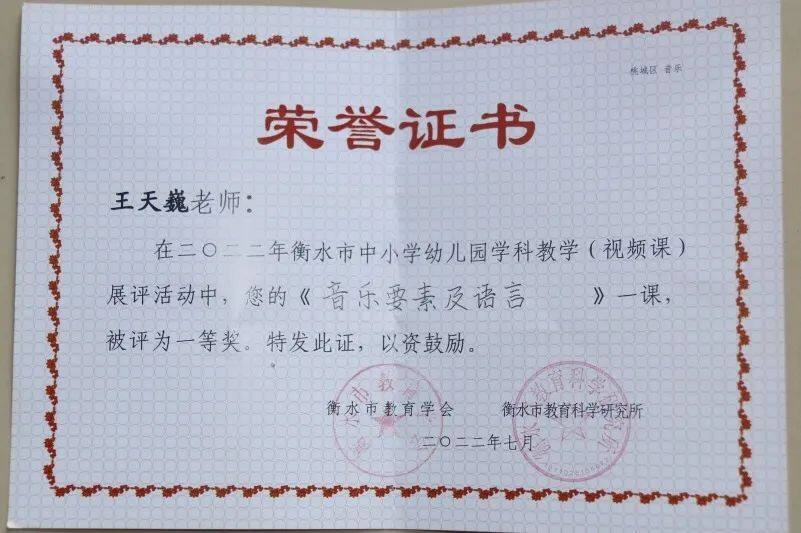 桃城区 音乐
荣誉证书
王天巍老师：
在二〇二二年衡水市中小学幼儿园学科教学（视频课）
展评活动中，您的《音乐要素及语言》一课，
被评为一等奖。特发此证，以资鼓励。
衡水市教育学会 衡水市教育科学研究所
二〇二二年七月